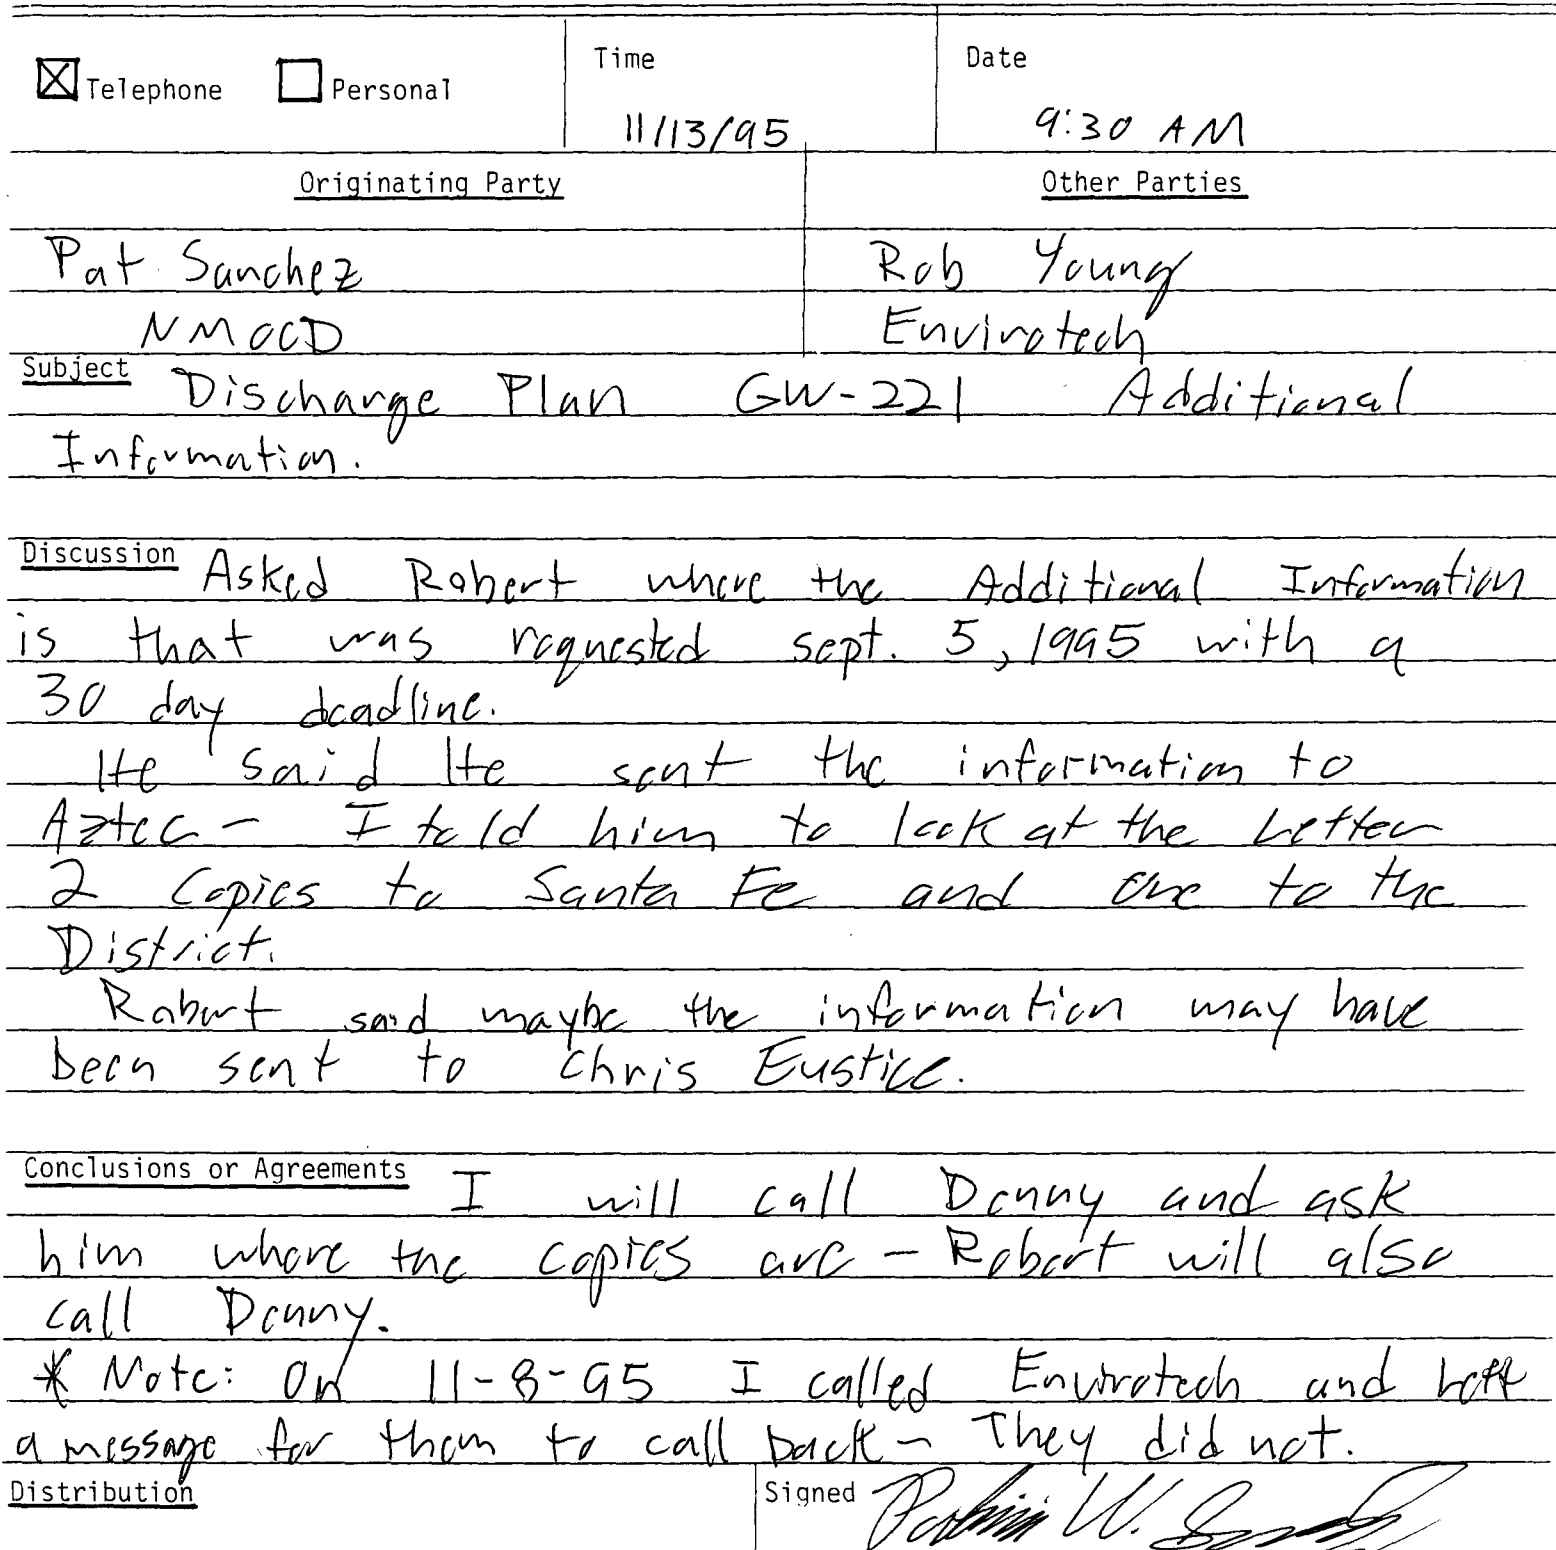 ☒ Telephone ☐ Personal Time Date
11/13/95 9:30 AM
Originating Party Other Parties
Pat Sanchez Rob Young
NMOCD Envirotech
Subject Discharge Plan GW-221 Additional
Information.
Discussion Asked Robert where the Additional Information
is that was requested sept. 5, 1995 with a
30 day deadline.
He said He sent the information to
Aztec - I told him to look at the Letter
2 Copies to Santa Fe and one to the
District.
Robert said maybe the information may have
been sent to Chris Eustice.
Conclusions or Agreements I will call Denny and ask
him where the copies are - Robert will also
call Denny.
* Note: On 11-8-95 I called Envirotech and Left
a message for them to call back - They did not.
Distribution Signed W.